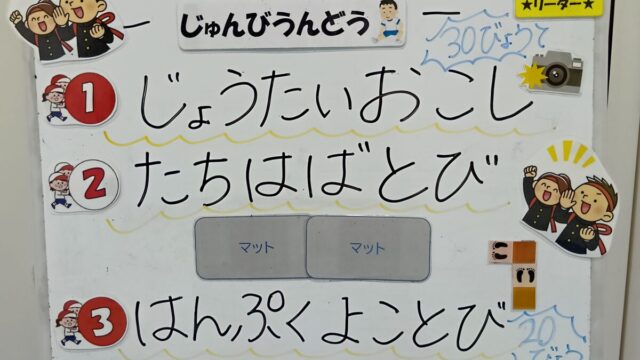 ★リーダー★
じゅんびうんどう
30びょうで
1 じょうたいおこし
2 たちはばとび
マット マット
3 はんぷくよことび
20
びょう